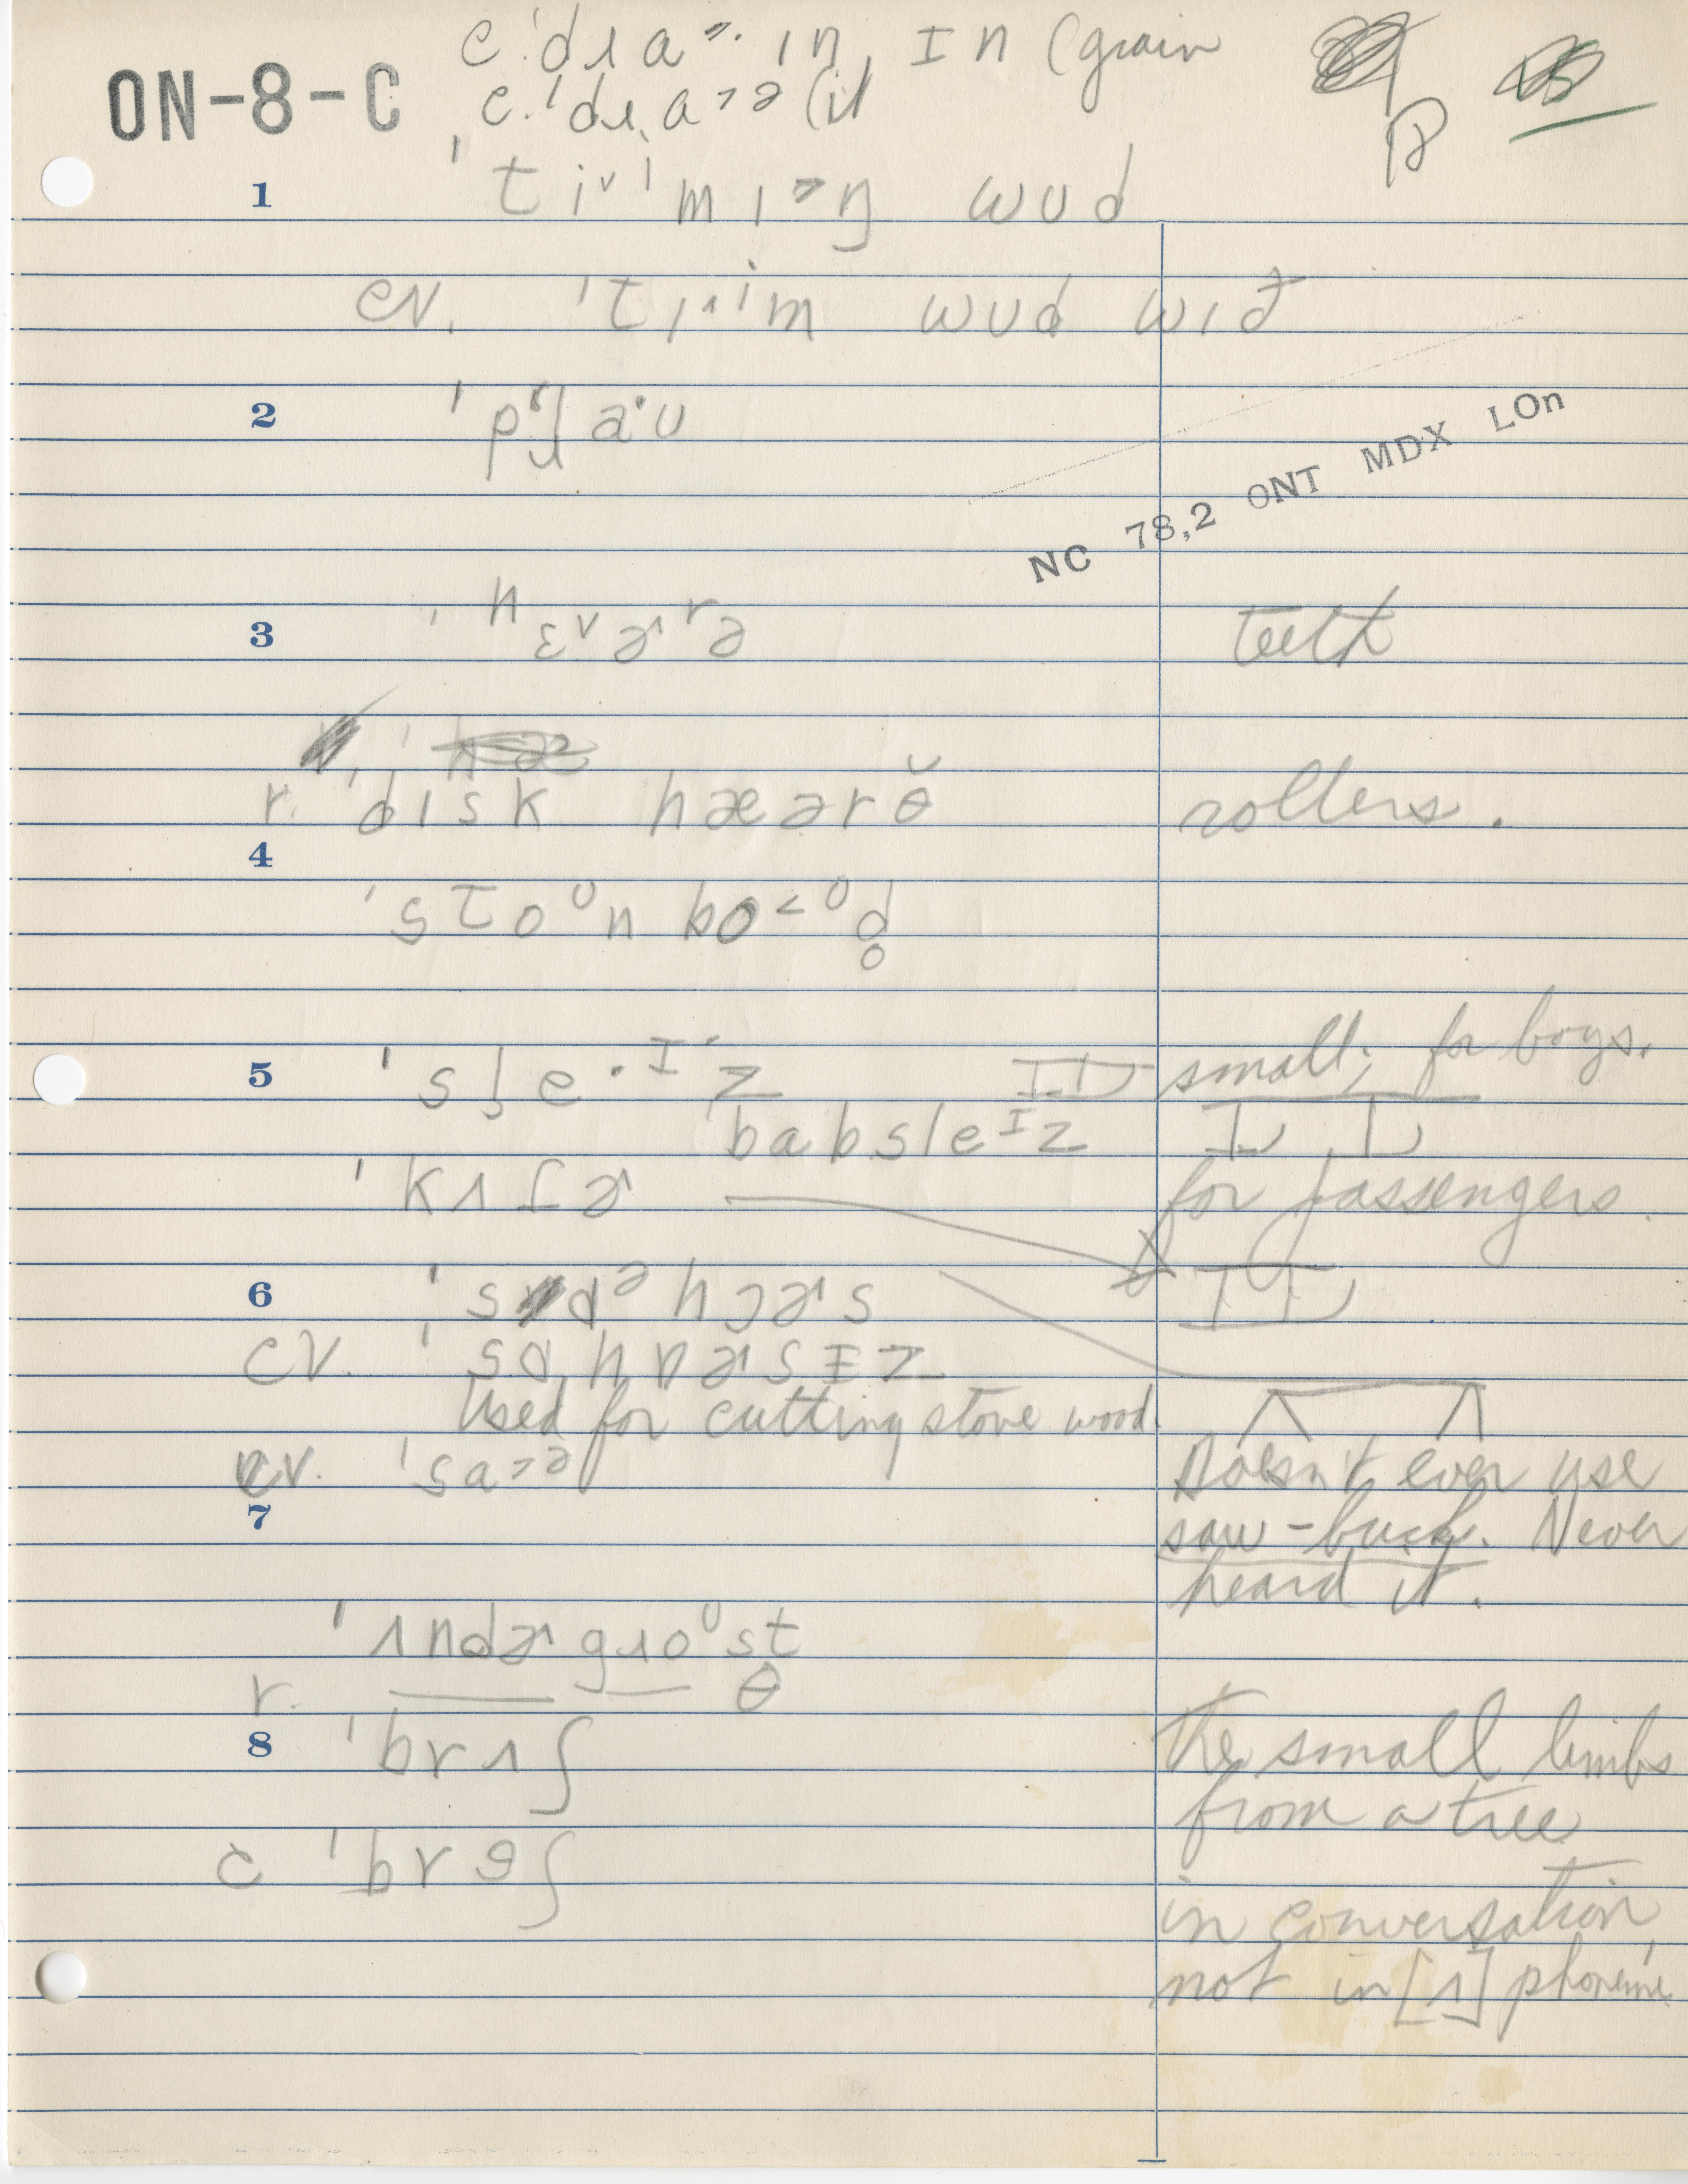 c. 'dɹa ɪn, ɪn (grain
ON-8-C
c. 'dɹa (it
1 'ti mɪ ŋ wud
cv. 'tiim wud wɪð
2 'plaˑu
NC 78,2 ONT MDX LOn
3 'hɛrə teeth
r. 'dɪsk hærə rollers.
4
'stoᵘn boᵘd̥
5 'sleˑɪz small; for boys.
babsleɪz
'kʌtɚ for passengers.
6 'sɔᵊhɔɚs
cv. 'sɒhɒɚsɪz
Used for cutting stove wood.
cv. 'sa
Doesn't ever use
7
saw-buck. Never
heard it.
'ʌndɚgɹoᵘst
r. θ
8 'brʌʃ the small limbs
from a tree
c 'brɘʃ
in conversation,
not in [ʌ] phoneme.